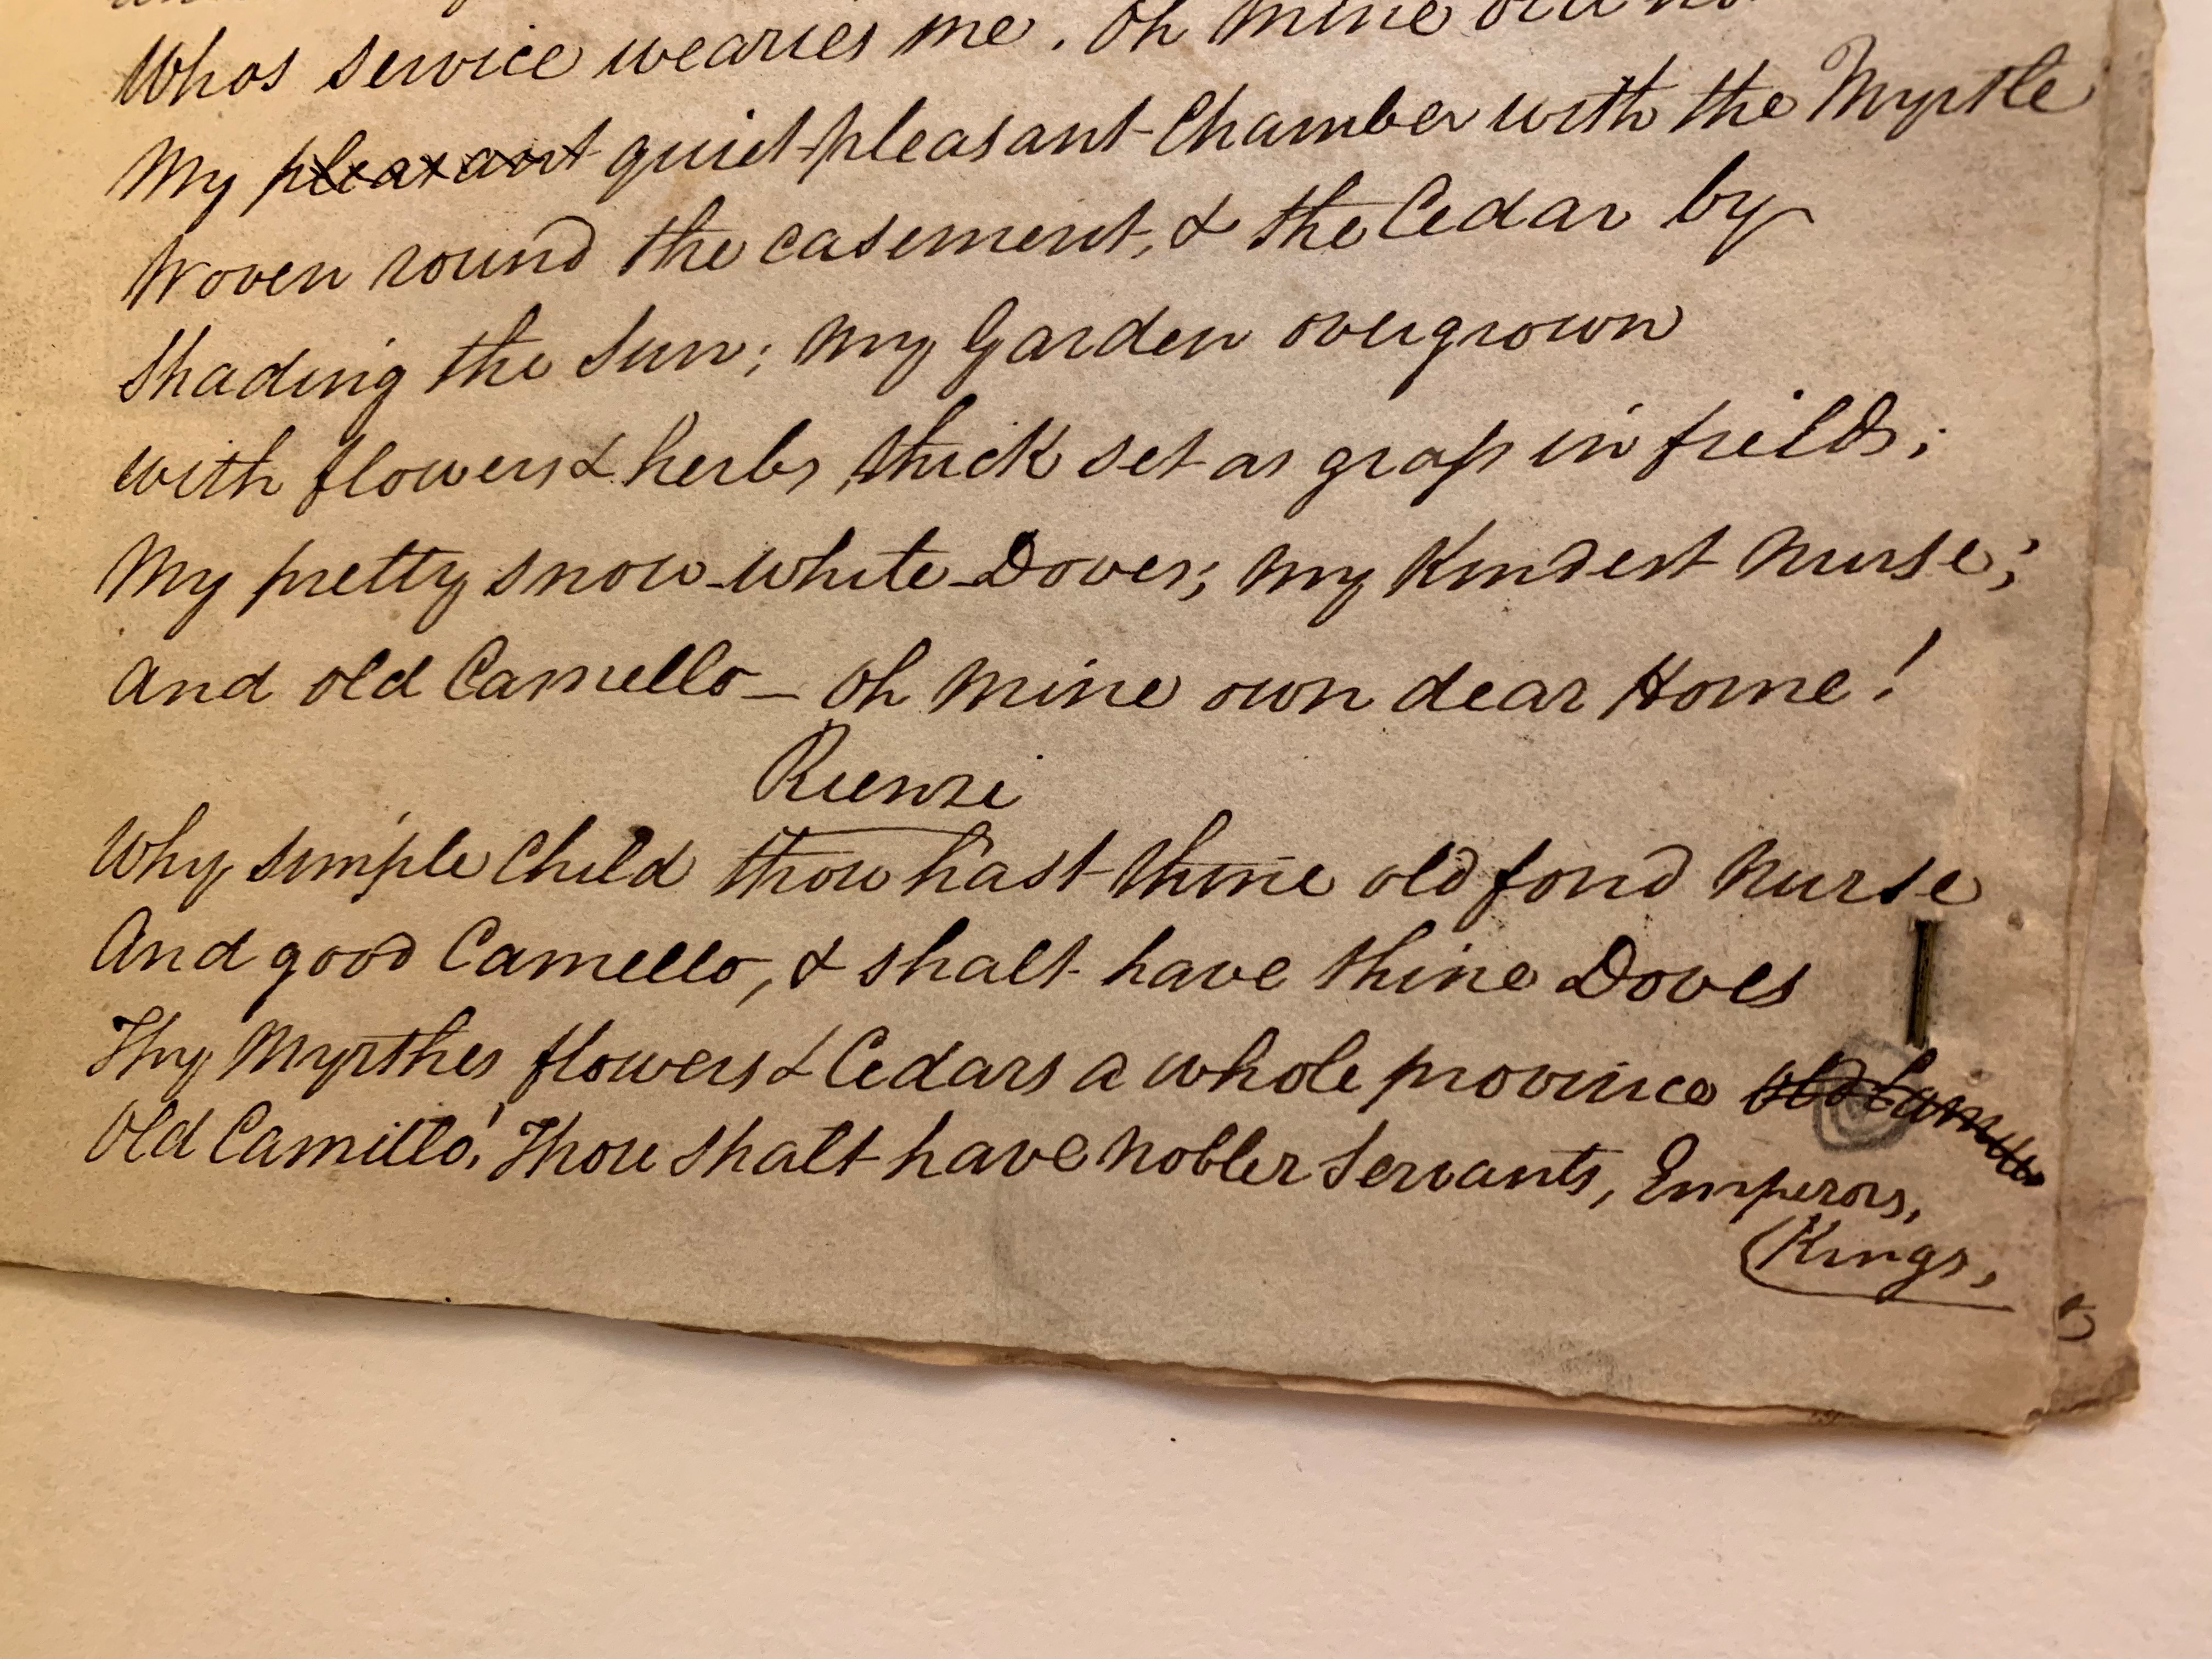 Whos service wearies me. Oh mine old
My pleasant quiet pleasant Chamber with the Myrtle
Woven round the casement, & the Cedar by
Shading the Sun; my Garden overgrown
with flowers & herbs, thick set as grass in fields;
My pretty snow-white Doves; my Kindest Nurse;
And old Camillo – Oh mine own dear Home!
Rienzi
Why, simple Child thou hast thine old fond Nurse
And good Camillo, & shalt have thine Doves
Thy Myrthes flowers & Cedars a whole province Old Camillo
Old Camillo! Thou shalt have nobler Servants, Emperors,
Kings,
5